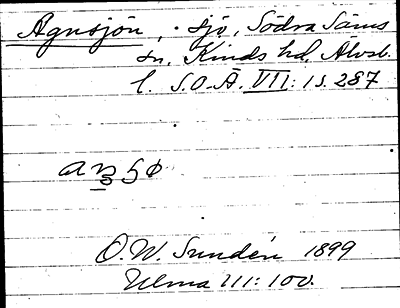 Agnsjön, sjö, Södra Säms
sn. Kinds hd, Älvsb.
l. S.O.Ä. VII: 1 s. 287
O.W. Sundén 1899
Ulma 111:100.